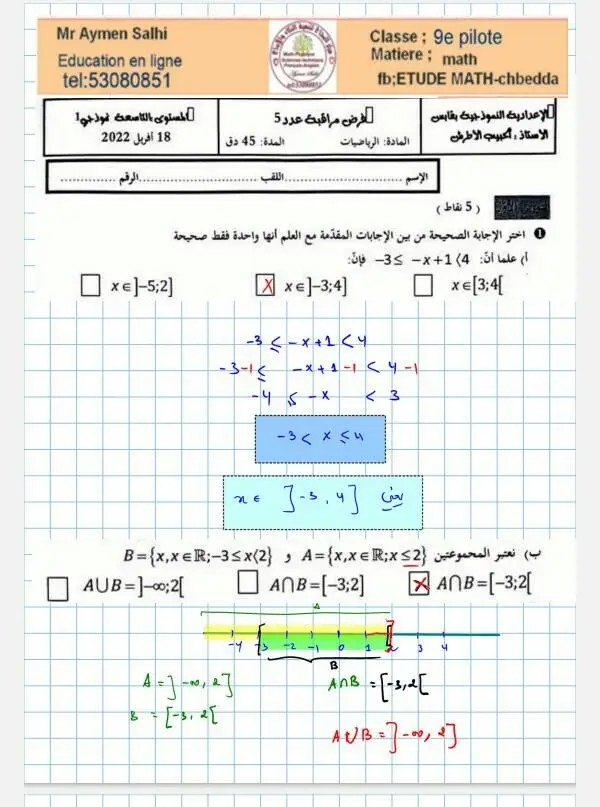 Mr Aymen Salhi
Education en ligne
tel:53080851
Classe ; 9e pilote
Matiere ; math
fb;ETUDE MATH-chbedda
الإعدادية النموذجية بقابس
فرض مراقبة عدد 5
المستوى التاسعة نموذجي 1
المادة: الرياضيات المدة: 45 دق
18 أفريل 2022
الإسم .......................... اللقب .......................... الرقم ................
( 5 نقاط )
❶ اختر الإجابة الصحيحة من بين الإجابات المقدّمة مع العلم أنها واحدة فقط صحيحة
أ) علما أنّ: -3≤ -x+1⟨4 فإنّ:
x∈]-5;2]
X x∈]-3;4]
x∈[3;4[
-3 ≤ -x+1 < 4
-3 -1 ≤ -x+1 -1 < 4 -1
-4 ≤ -x < 3
-3 < x ≤ 4
x ∈ ]-3 , 4] يعني
ب) نعتبر المجموعتين A={x,x∈ℝ;x≤2} و B={x,x∈ℝ;-3≤x⟨2}
A∪B=]-∞;2[
A∩B=[-3;2]
X A∩B=[-3;2[
A
-4 -3 -2 -1 0 1 2 3 4
B
A = ]-∞, 2]
B = [-3, 2[
A∩B = [-3, 2[
A∪B = ]-∞, 2]